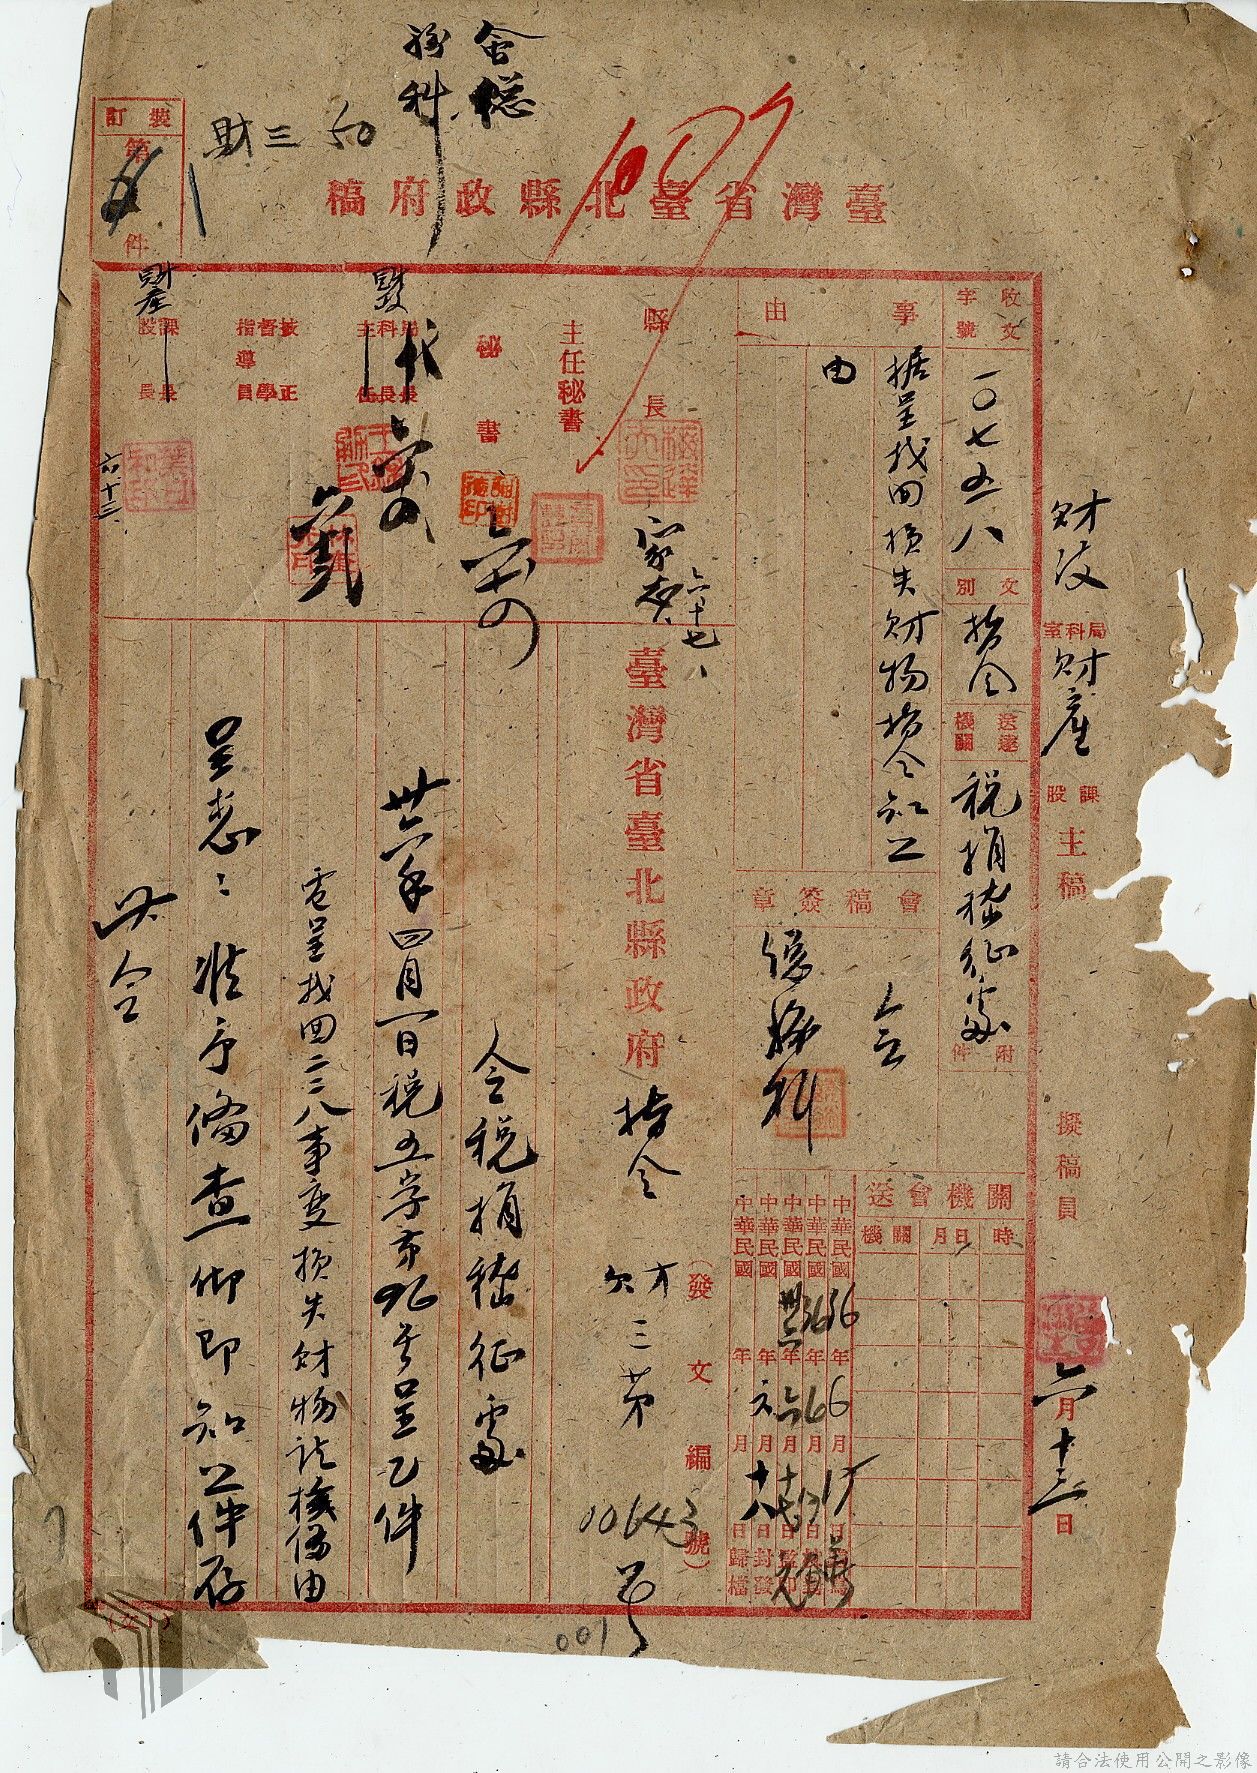 會總
務科
財三 50
1007
裝訂
第
件
臺灣省臺北縣政府稿
財政
局科室
財產
課股
主稿
擬稿員
六月十三日
收文
字號
一〇七五八
文別
指令
送達機關
稅捐稽征處
附件
事由
据呈找回損失財物指令知照
由
會稿簽章
會
總務科
關機會送
機關
月日
時
中華民國36年6月15日
中華民國36年6月
中華民國卅六年六月十七日
中華民國 年 月 日封發
中華民國 年 月 日歸檔
縣長
六十七
主任秘書
秘書
財政
局科主
長長任
技正
督學
指導員
財產
課股
長長
六.十三.
臺灣省臺北縣政府
指令
(發文編號)
財三第
10643
號
令稅捐稽征處
卅六年四月一日稅五字第
號呈乙件
電呈找回二二八事變損失財物請核備由
呈悉：准予備查仰即知照件存
此令
001
請合法使用公開之影像